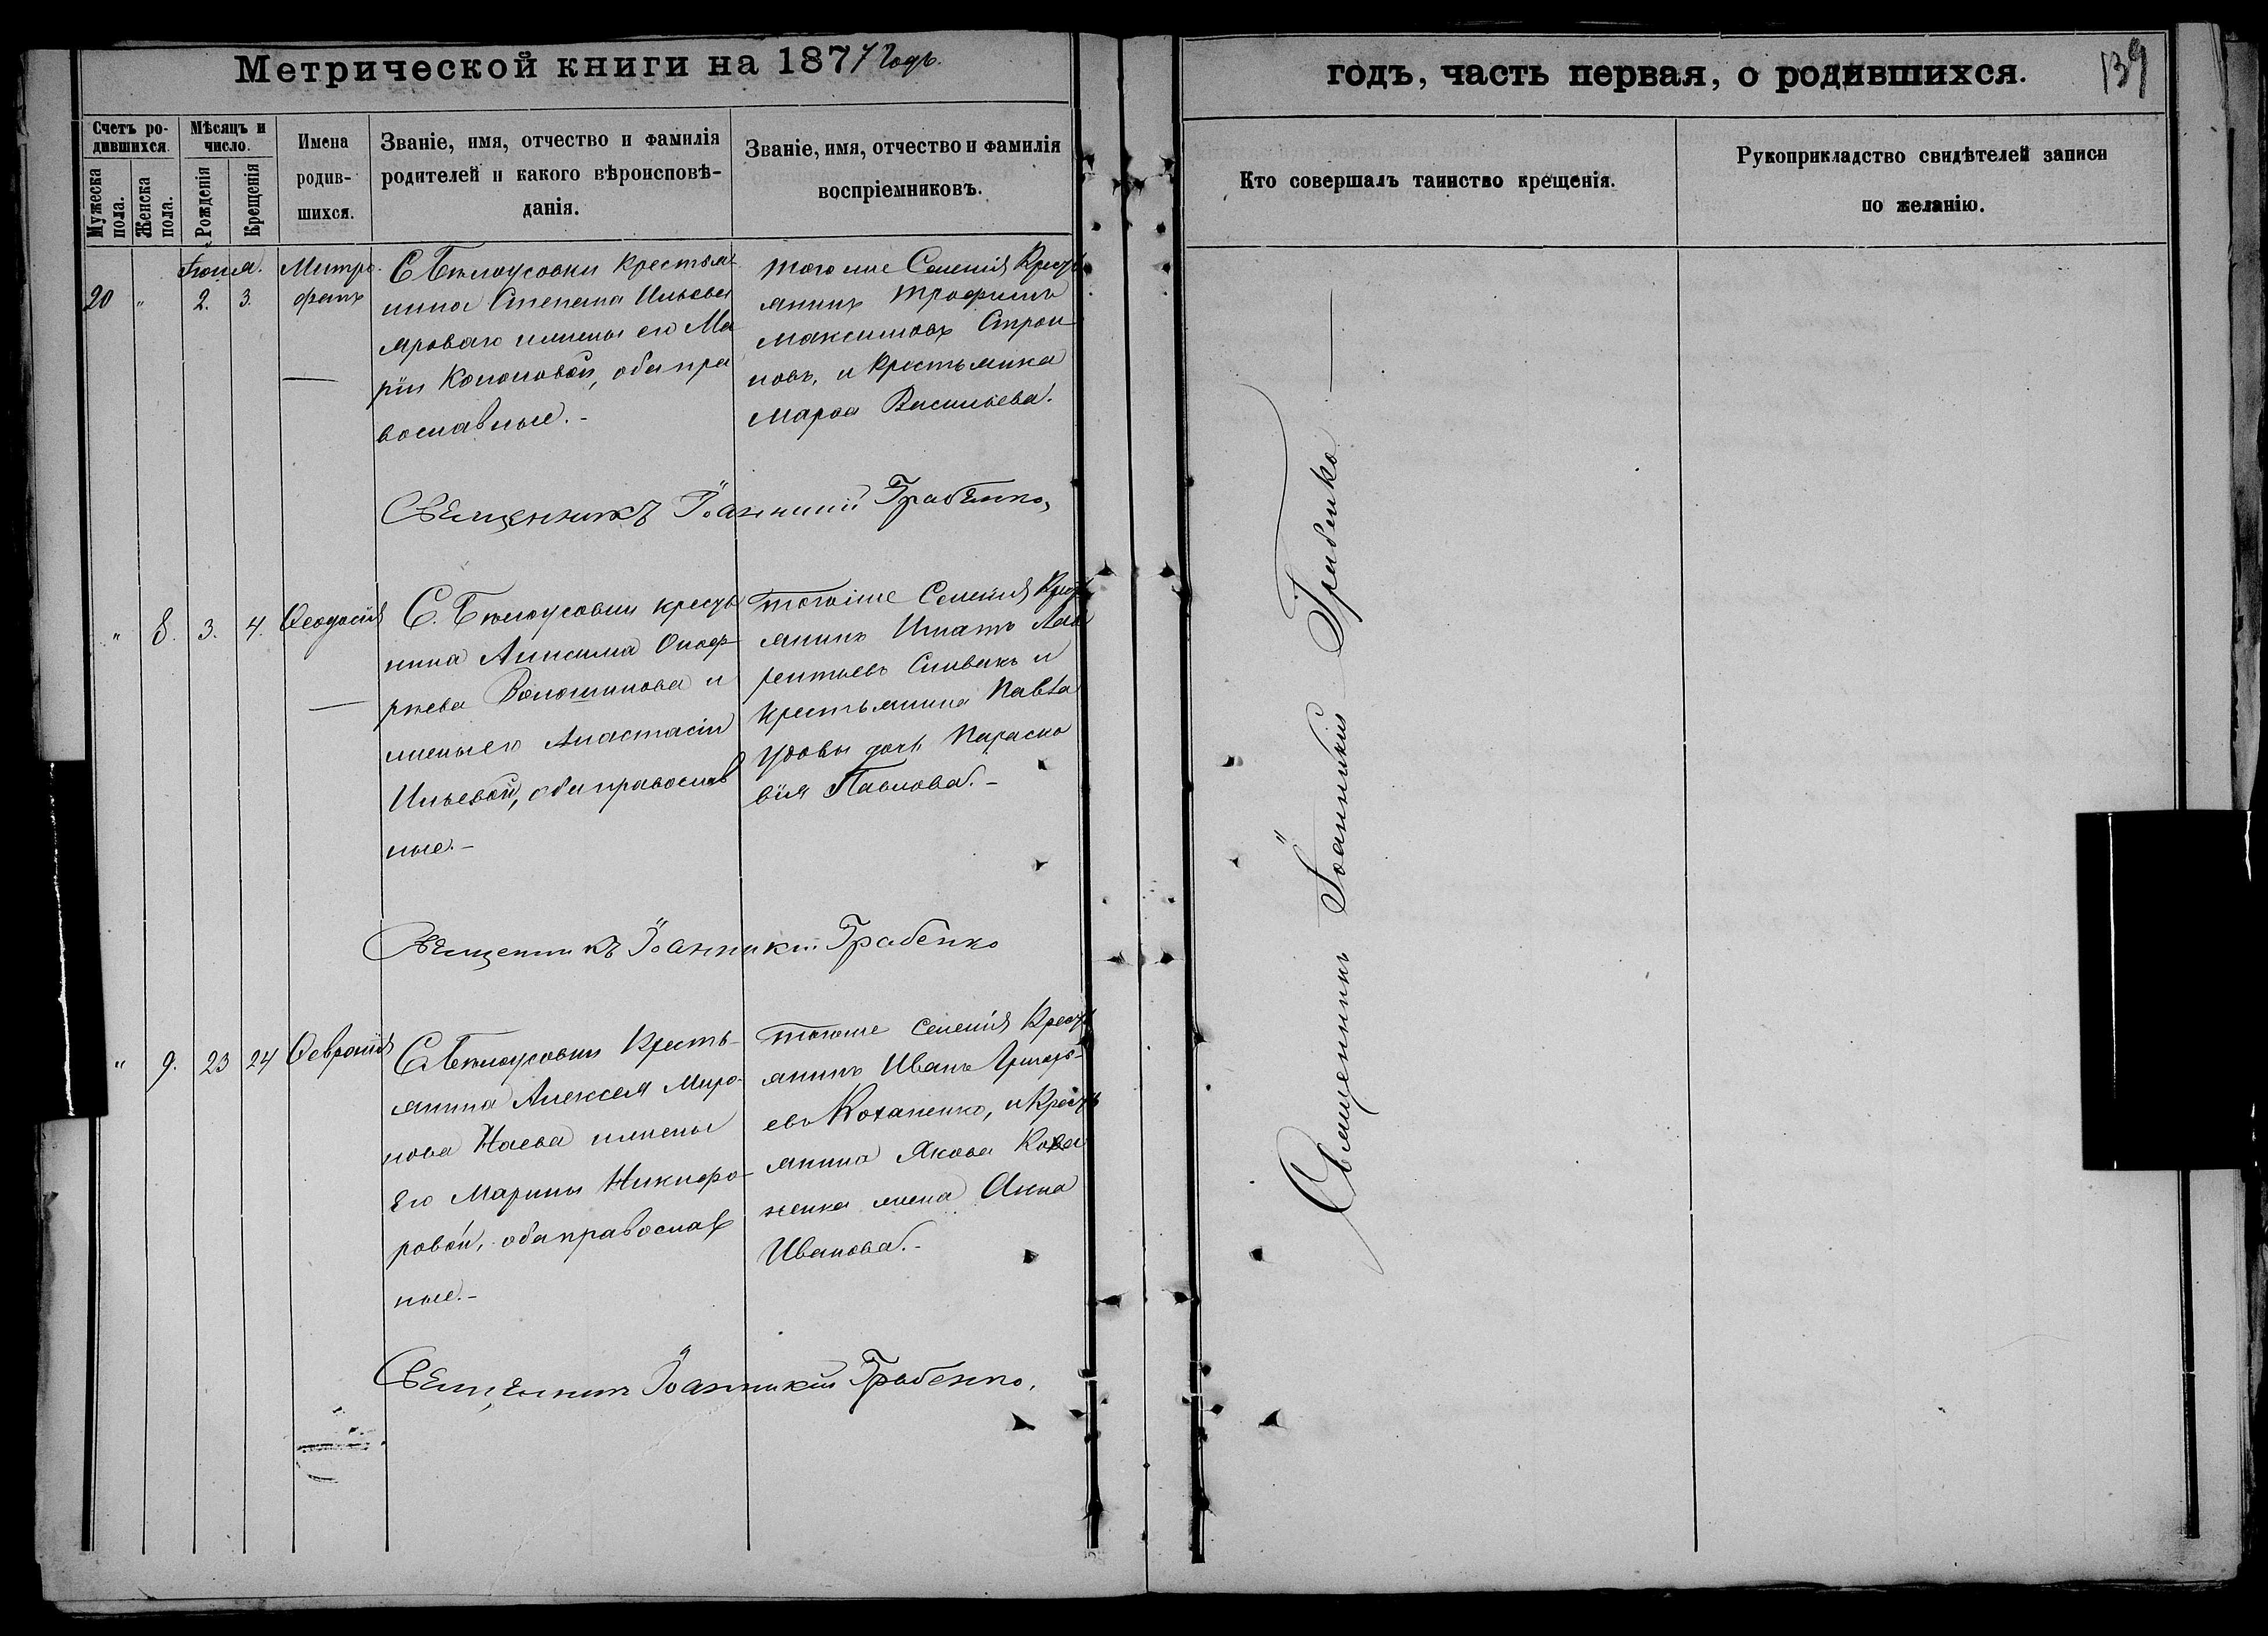 Метрической книги на 1877 Годъ.
Счетъ ро-
дившихся.
Мѣсяцъ и
число.
Мужеска
пола.
Женска
пола.
Рожденія
Крещенія
Имена
родив-
шихся.
Званіе, имя, отчество и фамилія
родителей и какого вѣроисповѣ-
данія.
Званіе, имя, отчество и фамилія
воспріемниковъ.
20 " 2. 3.
Митро-
фанъ
С Бѣлоусовки крестья-
нина Степана Ильева
и жены его Ма
ріи Кононовой, оба пра
вославные.-
тогоже Селенія Крест
янинъ Трофимъ
Максимовъ
и крестьянка
Марѳа Васильева.
Священникъ Іоанникій Грабенко,
" 8. 3. 4. Ѳеодосія
С. Бѣлоусовки кресть
нина Анисима Оноф-
ріева Волошинова и
жены его Анастасіи
Ильевой, оба православ
ные.-
тогоже Селенія Крест
янинъ Игнатъ Лав
рентьевъ Спивакъ и
крестьянина Павла
дочь Параско
вія Павлова.-
Священникъ Іоанникій Грабенко
" 9. 23 24 Ѳевронія
С Бѣлоусовки Кресть-
янина Алексея Миро-
нова Наева и жены
Его Марины Никифо-
ровой, оба православ
ные.-
тогоже Селенія Крест
янинъ Иванъ Григорь-
евъ Коханенко, и Крест
янина Якова Коха
ненка жена Анна
Иванова.-
Священникъ Іоанникій Грабенко.
годъ, часть первая, о родившихся.
139
Кто совершалъ таинство крещенія.
Рукоприкладство свидѣтелей записи
по желанію.
Священникъ Іоанникій Грабенко